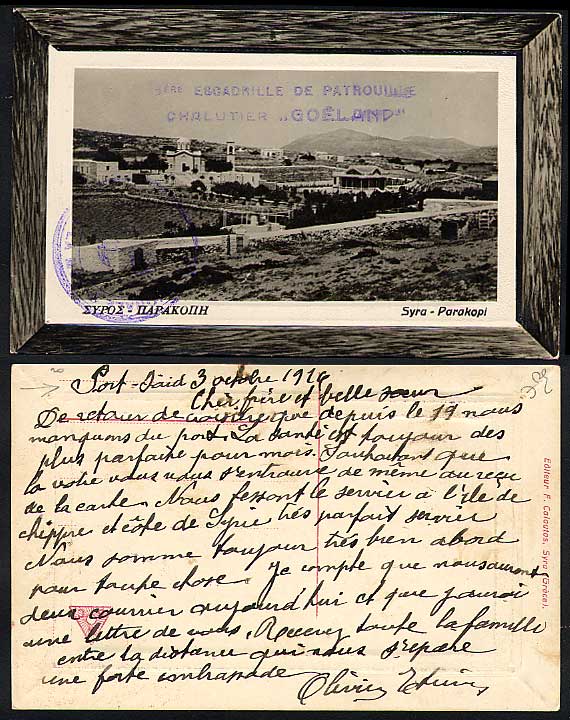 ÈRE ESCADRILLE DE PATROUILLE
CHALUTIER „GOËLAND"
ΣΥΡΟΣ - ΠΑΡΑΚΟΠΗ
Syra - Parakopi
Port-Said 3 octobre 1916
Cher frère et belle sœur
De retour de croisière que depuis le 19 nous
manquons du port. La santé est toujour des
plus parfaite pour mois. Souhaitant que
la votre vous vous s'entrouve de même au reçu
de la carte. Nous fesont le servier à l'île de
chippre et côte de Syrie très parfait servier
Nous somme toujour très bien abord
pour toute chose. Je compte que nous auront
deux courrier aujourd'hui et que j'aurai
une lettre de vous. Recevez toute la famille
entre la distance qui nous s'épare
une forte embrasade
Olivier
Editeur F. Caloutas, Syra (Grèce).